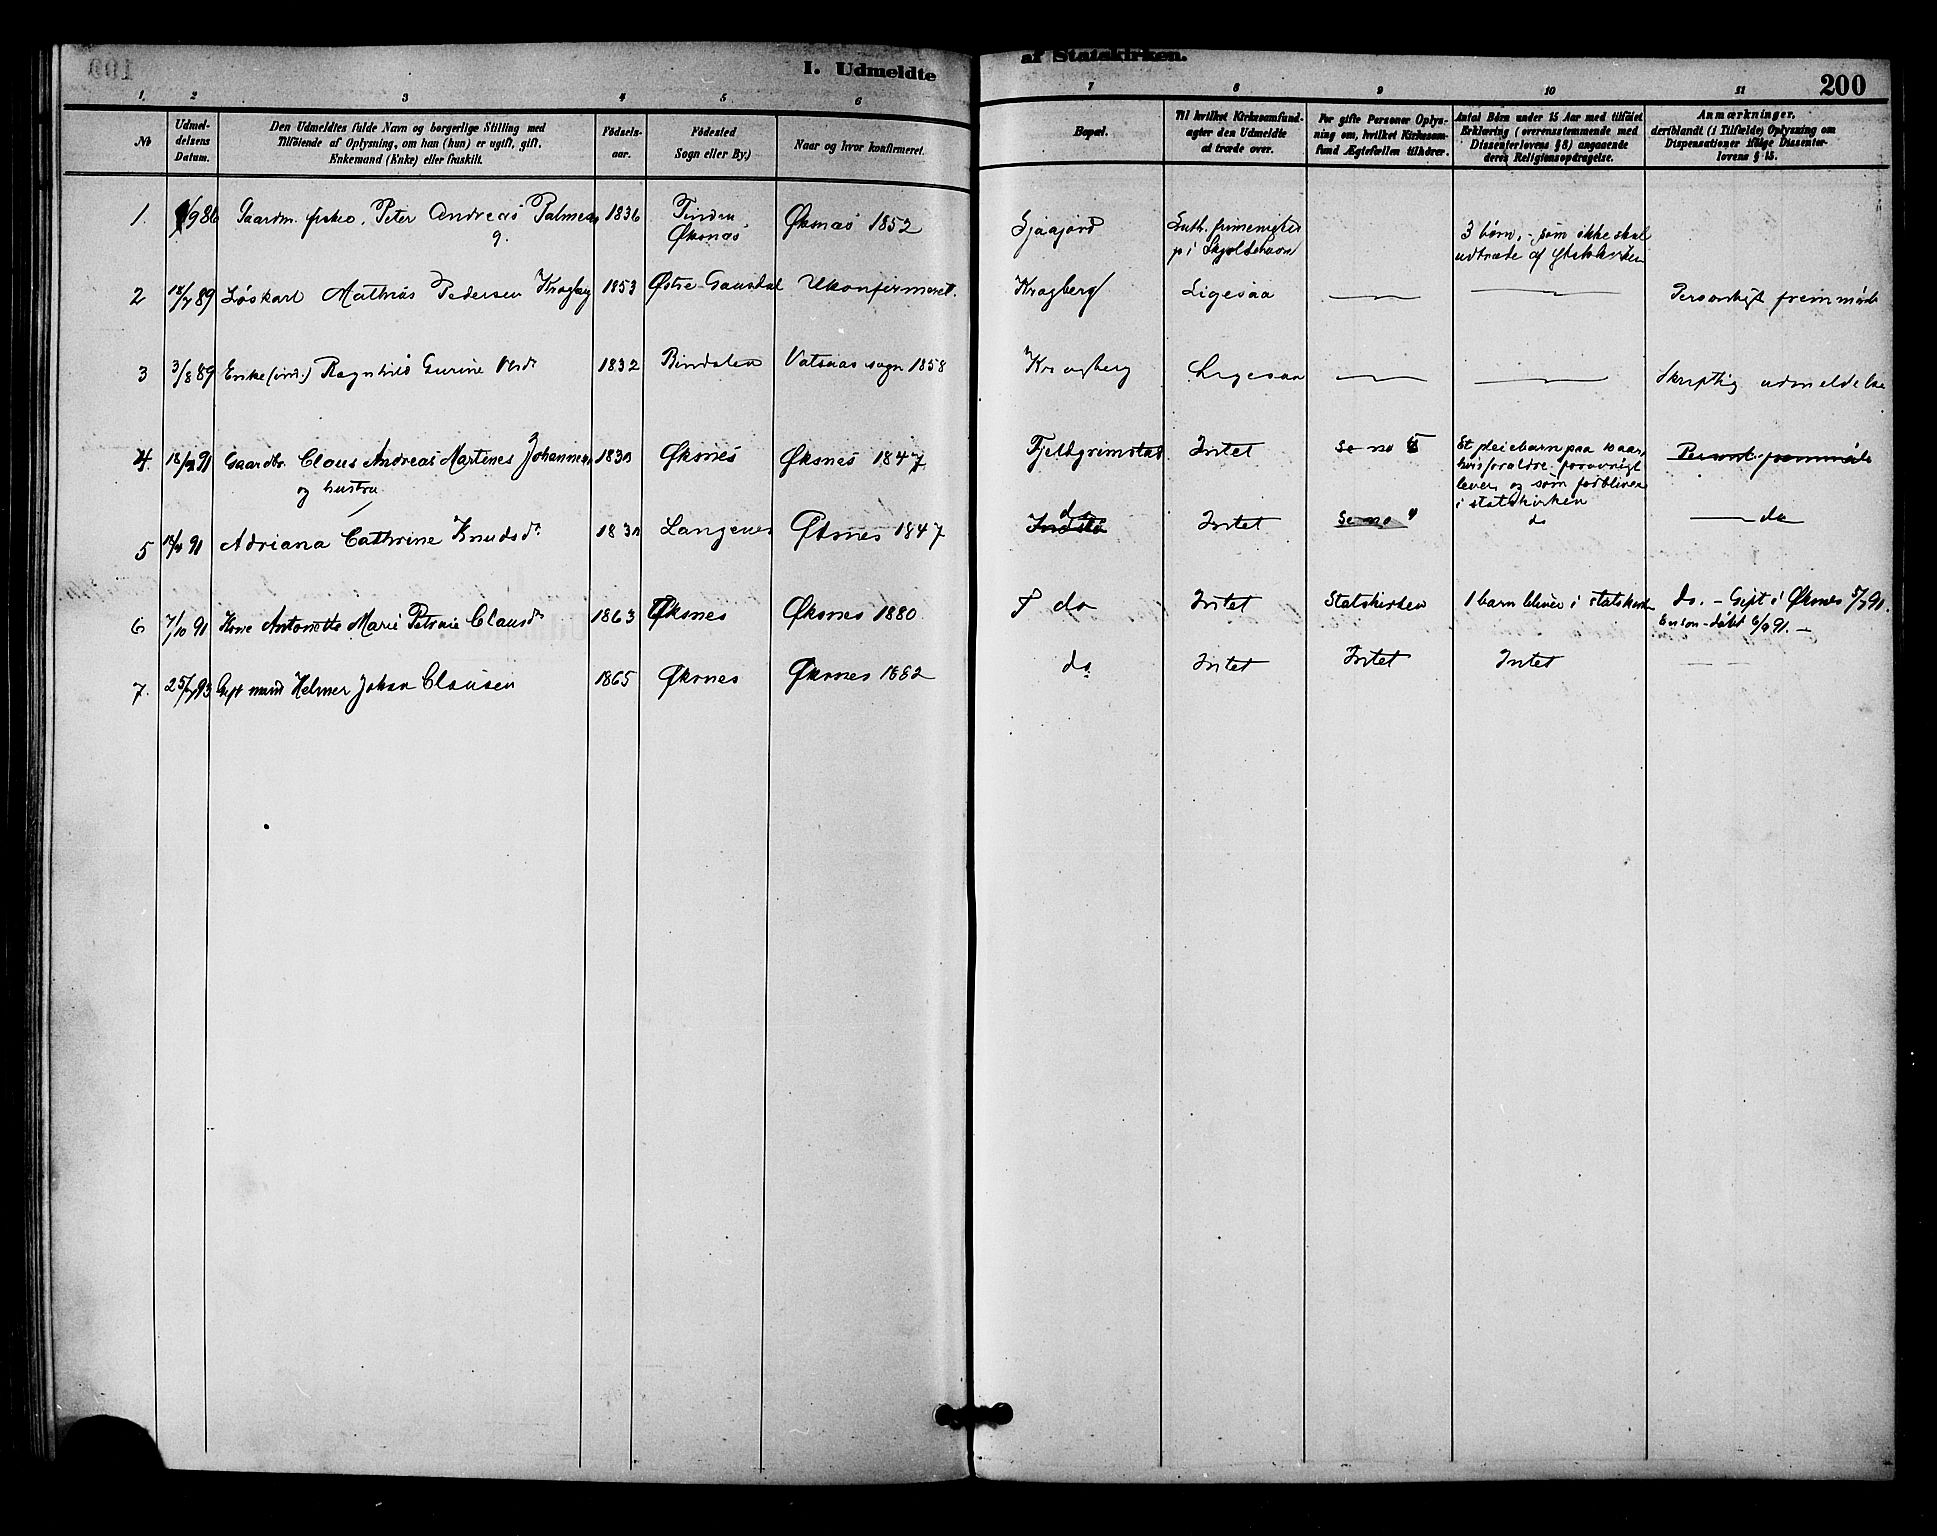 I. Udmeldte
af Statskirken.
200
1. 2 3 4 5. 6 7 8 9 10 11
No
Udmel-
delsens
Datum.
Den Udmeldtes fulde Navn og borgerlige Stilling med
Tilföiende af Oplysning, om han (hun) er ugift, gift,
Enkemand (Enke) eller fraskilt.
Födsels-
aar.
Födested
Sogn eller By.)
Naar og hvor konfirmeret.
Bopæl.
Til hvilket Kirkesamfund
agter den Udmeldte
at træde over.
For gifte Personer Oplys-
ning om, hvilket Kirkesam-
fund Ægtefællen tilhörer.
Antal Börn under 15 Aar med tilföiet
Erklæring (overensstemmende med
Dissenterlovens § 8) angaaende
deres Religionsopdragelse.
Anmærkninger,
deriblandt (i Tilfælde) Oplysning om
Dispensationer ifölge Dissenter-
lovens § 15.
1. /9 86 Gaardm. Peter Andreas 1836 Tinden Øksnæs 1852
g. Øksnæs
Luth. frimenighed
3 børn, - som ikke skal
udtræde af Statskirken
2 18/7 89 Løskarl Mathias Pedersen Kragberg 1853 Østre Gausdal Ukonfirmeret. Kragberg Ligesaa — — Personligt fremmødt
3 3/8 89 Enke (ind.) Ragnhild Gurine 1832 Bindalen Vatsaas sogn 1858 Kragberg Ligesaa — — Skriftlig udmeldelse
4. 18/ 91 Gaardbr. Claus Andreas Martenes Johannesen Øksnes Øksnes 1847 Fjeldgrimstad Intet se no 5 Et pleiebarn paa 10 aar,
og hustru
hvis forældre
lever og som forbliver
i statskirken
5 91 Adriana Cathrine Knudsdr. Langenes Øksnes 1847 do Intet se no 4 do — do
6 7/10 91 Kone Antonette Marie Petrine Clausdr 1863 Øksnes Øksnes 1880 do Intet Statskirken 1 barn bliver i statskirken do. - Gift i Øksnes 5/7 91.
En søn - døbt 6/9 91. -
7. 25/ 93 Gift mand Helmer Johan Clausen 1865 Øksnes Øksnes 1882 do Intet Intet Intet